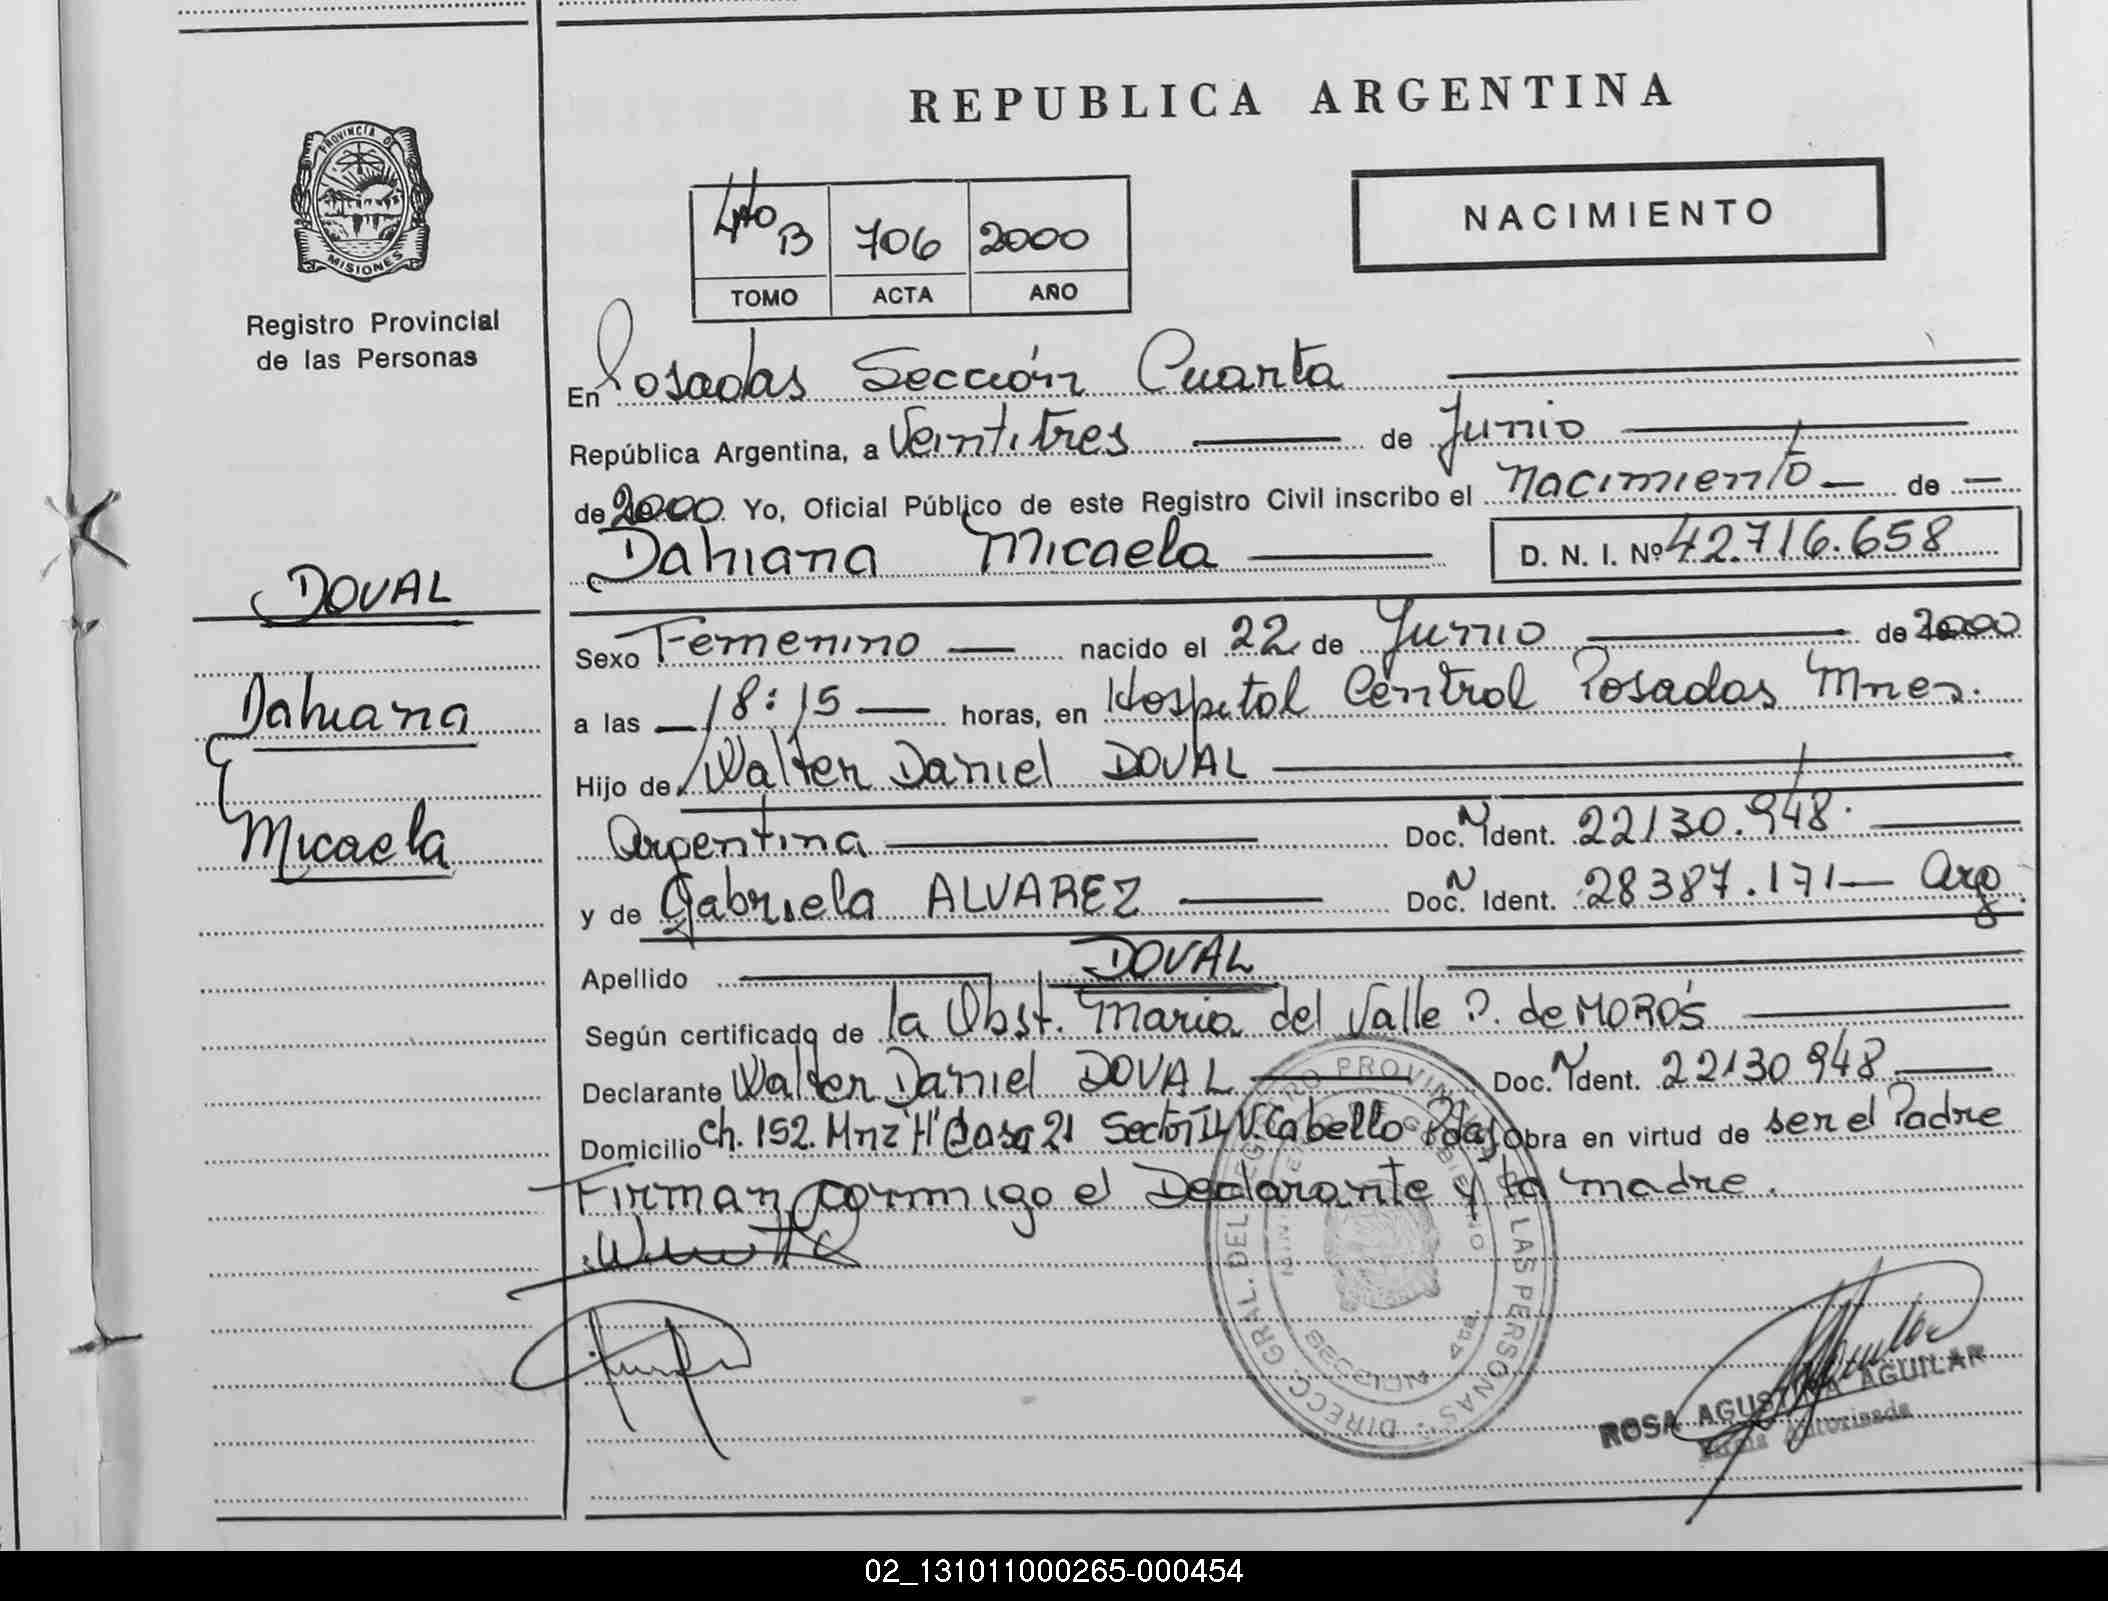 REPUBLICA ARGENTINA
PROVINCIA DE
MISIONES
Registro Provincial
de las Personas
4to B 706 2000
TOMO ACTA AÑO
NACIMIENTO
En Posadas Sección Cuarta
República Argentina, a Veintitres de Junio
de 2000 Yo, Oficial Público de este Registro Civil inscribo el Nacimiento de
Dahiana Micaela D. N. I. Nº 42.716.658
DOVAL
Dahiana
Micaela
Sexo Femenino nacido el 22 de Junio de 2000
a las 18:15 horas, en Hospital Central Posadas Mnes.
Hijo de Walter Daniel DOVAL
Argentina Doc. N Ident. 22130.948.
y de Gabriela ALVAREZ Doc. N Ident. 28387.171 Arg
Apellido DOVAL
Según certificado de la Obst. Maria del Valle P. de MOROS
Declarante Walter Daniel DOVAL Doc. N Ident. 22130948
Domicilio Ch. 152. Mnz "H" Casa 21 Sector II V. Cabello Pdas Obra en virtud de ser el Padre
Firman conmigo el Declarante y la madre.
DIRECC. GRAL. DEL REGISTRO PROVINCIAL DE LAS PERSONAS
SECCION 4ta.
ROSA AGUSTINA AGUILAR
Firma Autorizada
02_131011000265-000454